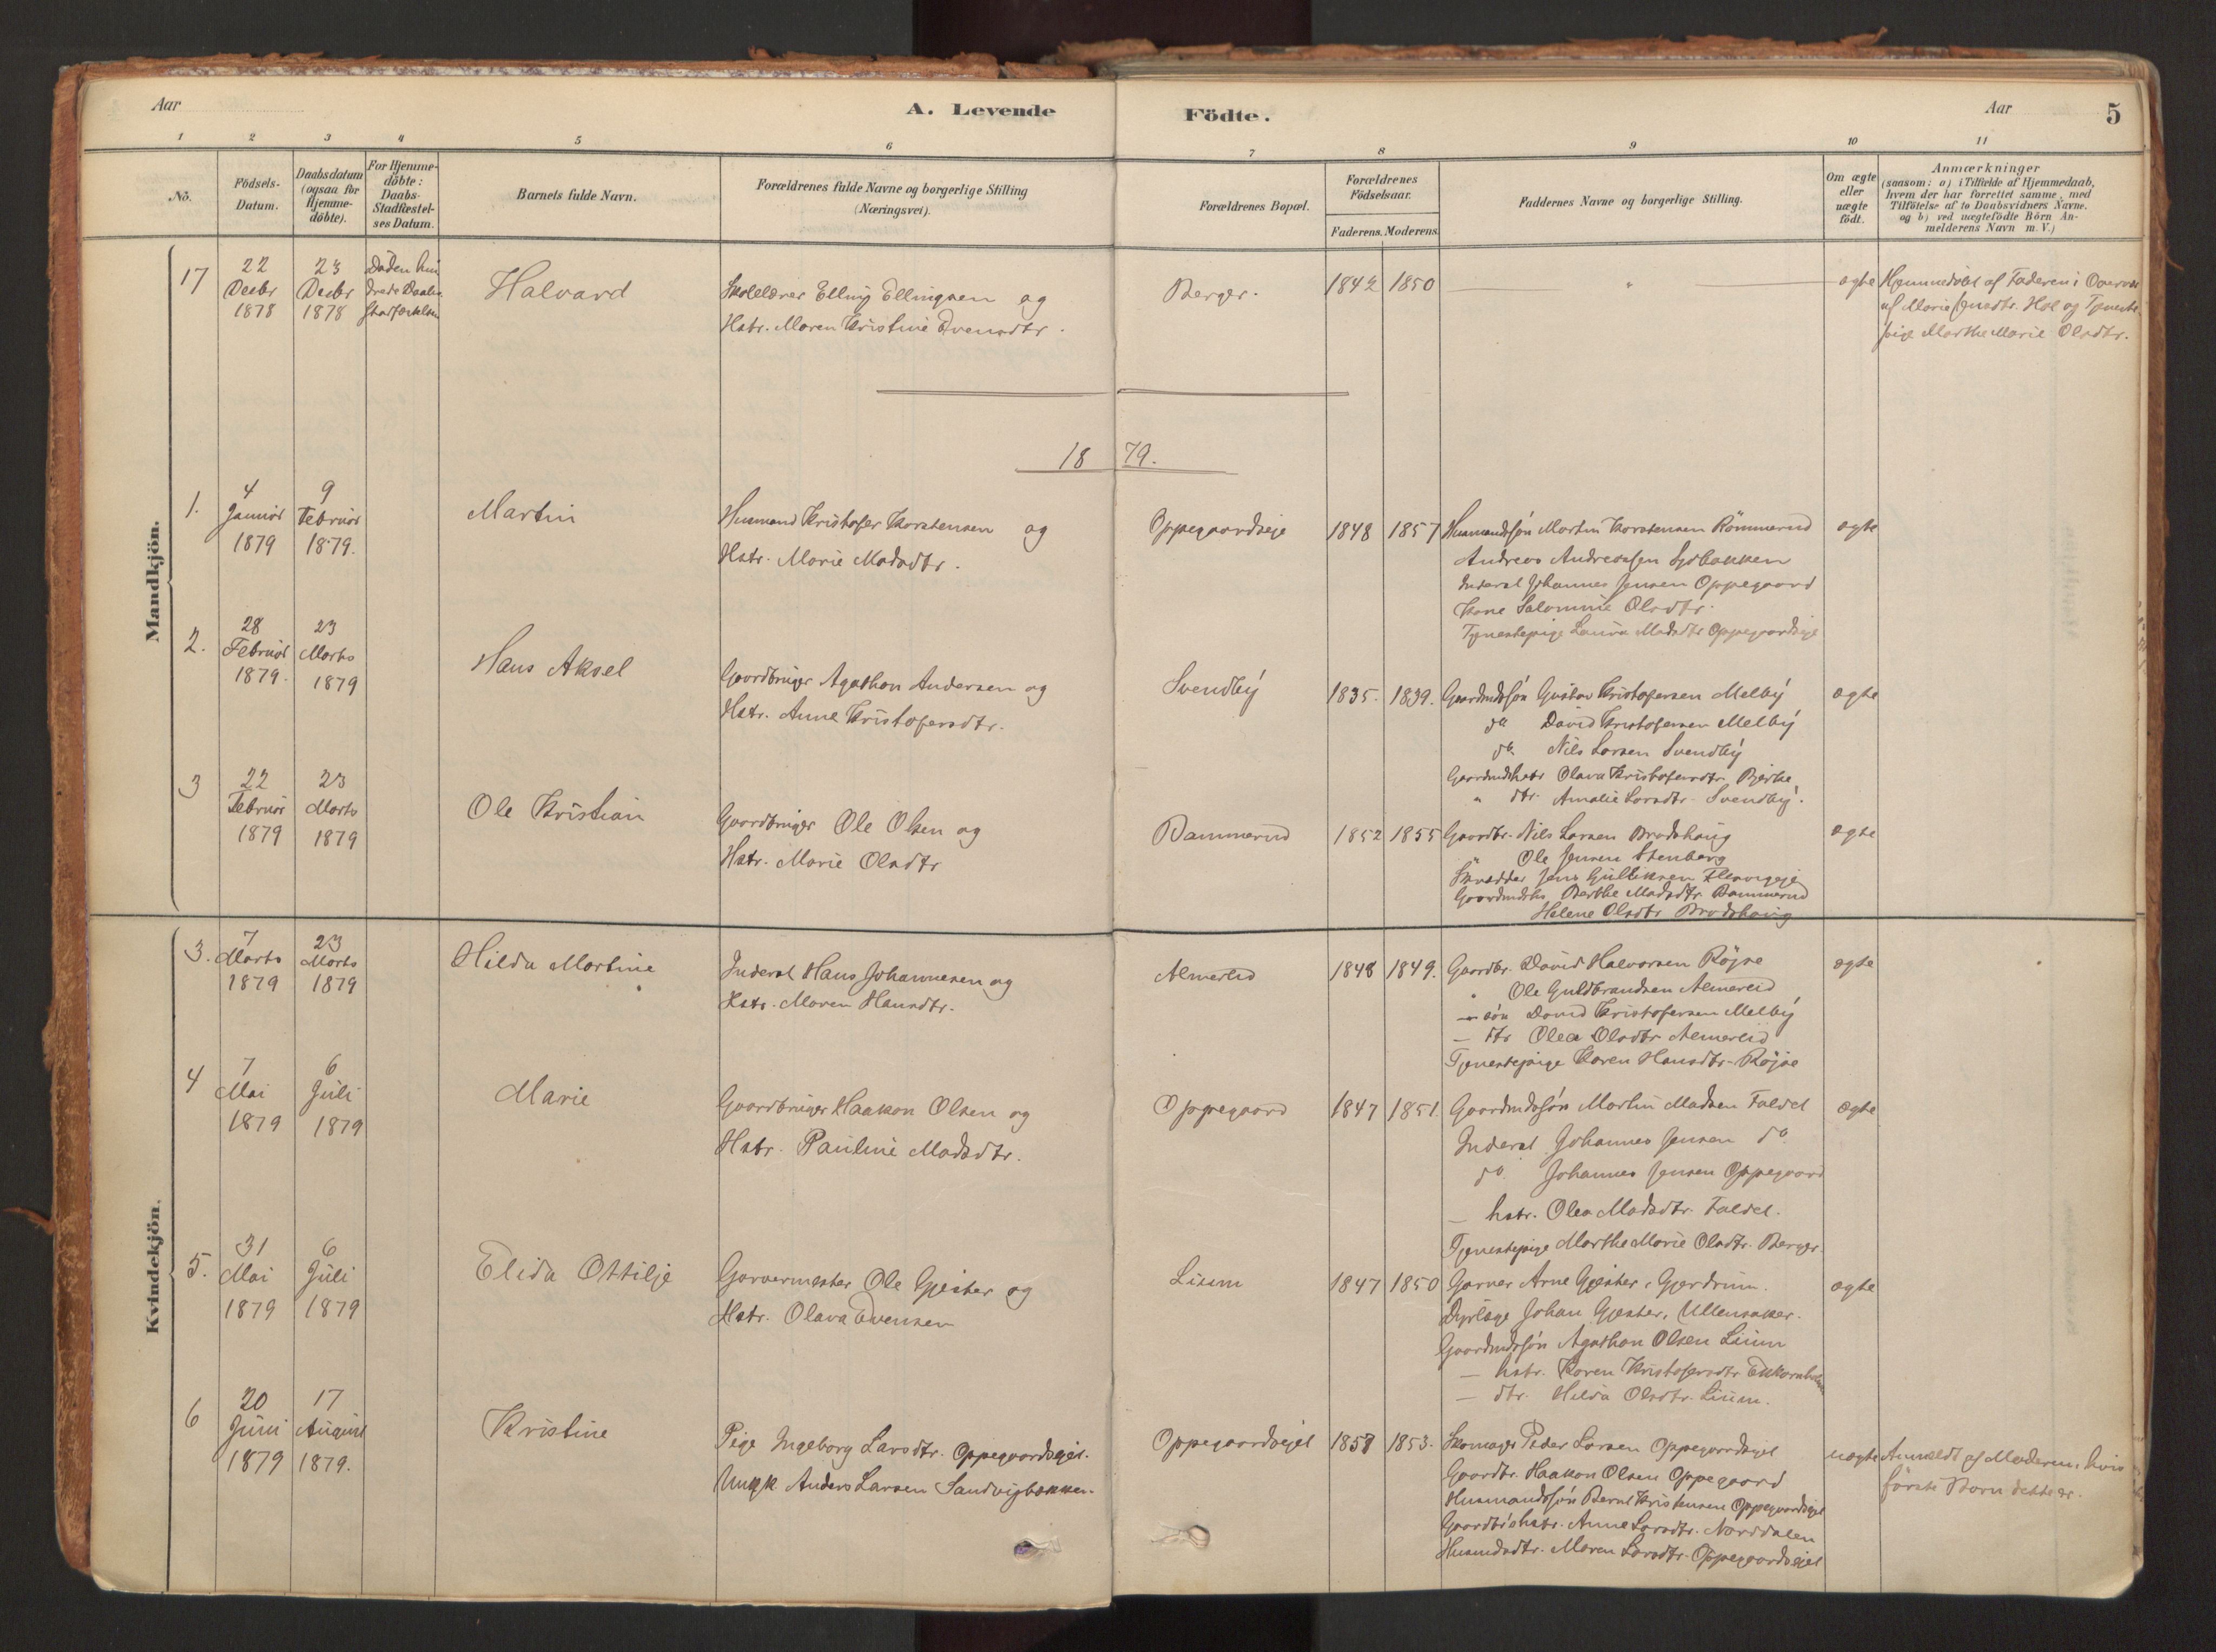 Aar
A. Levende Födte.
Aar
5
1 2 3 4 5 6 7 8 9 10 11
No.
Födsels-Datum.
Daabsdatum (ogsaa for Hjemme-döbte).
For Hjemme-döbte: Daabs-Stadfæstel-ses Datum.
Barnets fulde Navn.
Forældrenes fulde Navne og borgerlige Stilling (Næringsvei).
Forældrenes Bopæl.
Forældrenes Födselsaar.
Faderens. Moderens.
Faddernes Navne og borgerlige Stilling.
Om ægte eller uægte födt.
Anmærkninger
(saasom: a) i Tilfælde af Hjemmedaab,
hvem der har forrettet samme, med
Tilföielse af to Daabsvidners Navne.
og b) ved uægtefödte Börn An-
melderens Navn m. V.)
Mandkjön.
17
22 Decbr 1878
23 Decbr 1878
Döden hin
drede Daabs
stadfæstelsen
Halvard
Skolelærer Elling Ellingsen og
Hstr. Maren Kristine Evensdtr.
Berger.
1842 1850
"
ægte
Hjemmedöbt af Faderen i Overvær
af Marie Hol og Tjeneste
pige Marthe Marie Olsdtr.
1879.
1.
4 Januar 1879
9 Februar 1879.
Martin
Husmand Kristofer Torstensen og
Hstr. Marie Madsdtr.
Oppegaardseje
1848 1857
Husmandssön Martin Torstensen Römmerud
Andreas Andreassen Sydbakken
Inderst Johannes Jensen Oppegaard
Kone Salomine Olsdtr.
Tjenestepige Laura Madsdtr Oppegaardseje
ægte
2.
28 Februar 1879.
23 Marts 1879
Hans Aksel
Gaardbruger Agathon Andersen og
Hstr. Anne Kristofersdtr.
Svendby
1835. 1839.
Gaardmdssön Gustav Kristofersen Melby
do David Kristofersen Melby
do. Nils Larsen Svendby
Gaardmdshstr Olava Kristofersdtr. Bjerke
" dtr. Amalie Larsdtr. Svendby.
ægte
3
22 Februar 1879
23 Marts 1879
Ole Kristian
Gaardbruger Ole Olsen og
Hstr. Marie Olsdtr
Bammerud
1852 1855
Gaardbr. Nils Larsen Brodshaug
" Ole Jensen Stenberg
Skrædder Jens Gulliksen
Berthe Madsdtr Bammerud
Helene Olsdtr Brodshaug
ægte
Kvindekjön.
3.
7 Marts 1879
23 Marts 1879
Hilda Martine
Inderst Hans Johannesen og
Hstr. Maren Hansdtr.
Almerud
1848 1849.
Gaardbr. David Halvorsen Röjse
" Ole Guldbrandsen Almerud
– sön David Kristofersen Melby
– dtr Olea Olsdtr Almerud
Tjenestepige Karen Hansdtr. Röjse
ægte
4
7 Mai 1879
6 Juli 1879
Marie
Gaardbruger Haakon Olsen og
Hstr. Pauline Madsdtr.
Oppegaard
1847 1851.
Gaardmdssön Martin Madsen Faldet
Inderst Johannes Jensen do.
do. Johannes Jensen Oppegaard
– hstr. Olea Madsdtr. Faldet.
Tjenestepige Marthe Marie Olsdtr. Berger.
ægte
5.
31 Mai 1879
6 Juli 1879
Elida Ottilje
Garvermester Ole Gjester og
Hstr. Olava Evensen
Lium
1847 1850
Garver Arne Gjester, Gjerdrum.
Dyrlæge Johan Gjester, Ullensaker.
Gaardmdssön Agathon Olsen Lium
– hstr. Karen Kristofersdtr
– dtr. Hilda Olsdtr. Lium.
ægte
6
20 Juni 1879
17 August 1879.
Kristine
Pige Ingeborg Larsdtr. Oppegaardsejet.
Ungk Anders Larsen Sandvigbakken.
Oppegaardsejet
1857 1853.
Skomager Peder Larsen Oppegaardsejet
Gaardbr. Haakon Olsen Oppegaard
Husmandssön Bernt Kristensen Oppegaardsejet
Gaardbrshstr. Anne Larsdtr. Norddalen
Husmdsdtr. Maren Larsdtr. Oppegaardsejet
uægte
Anmeldt af Moderen, hvis
förste Barn dette er.